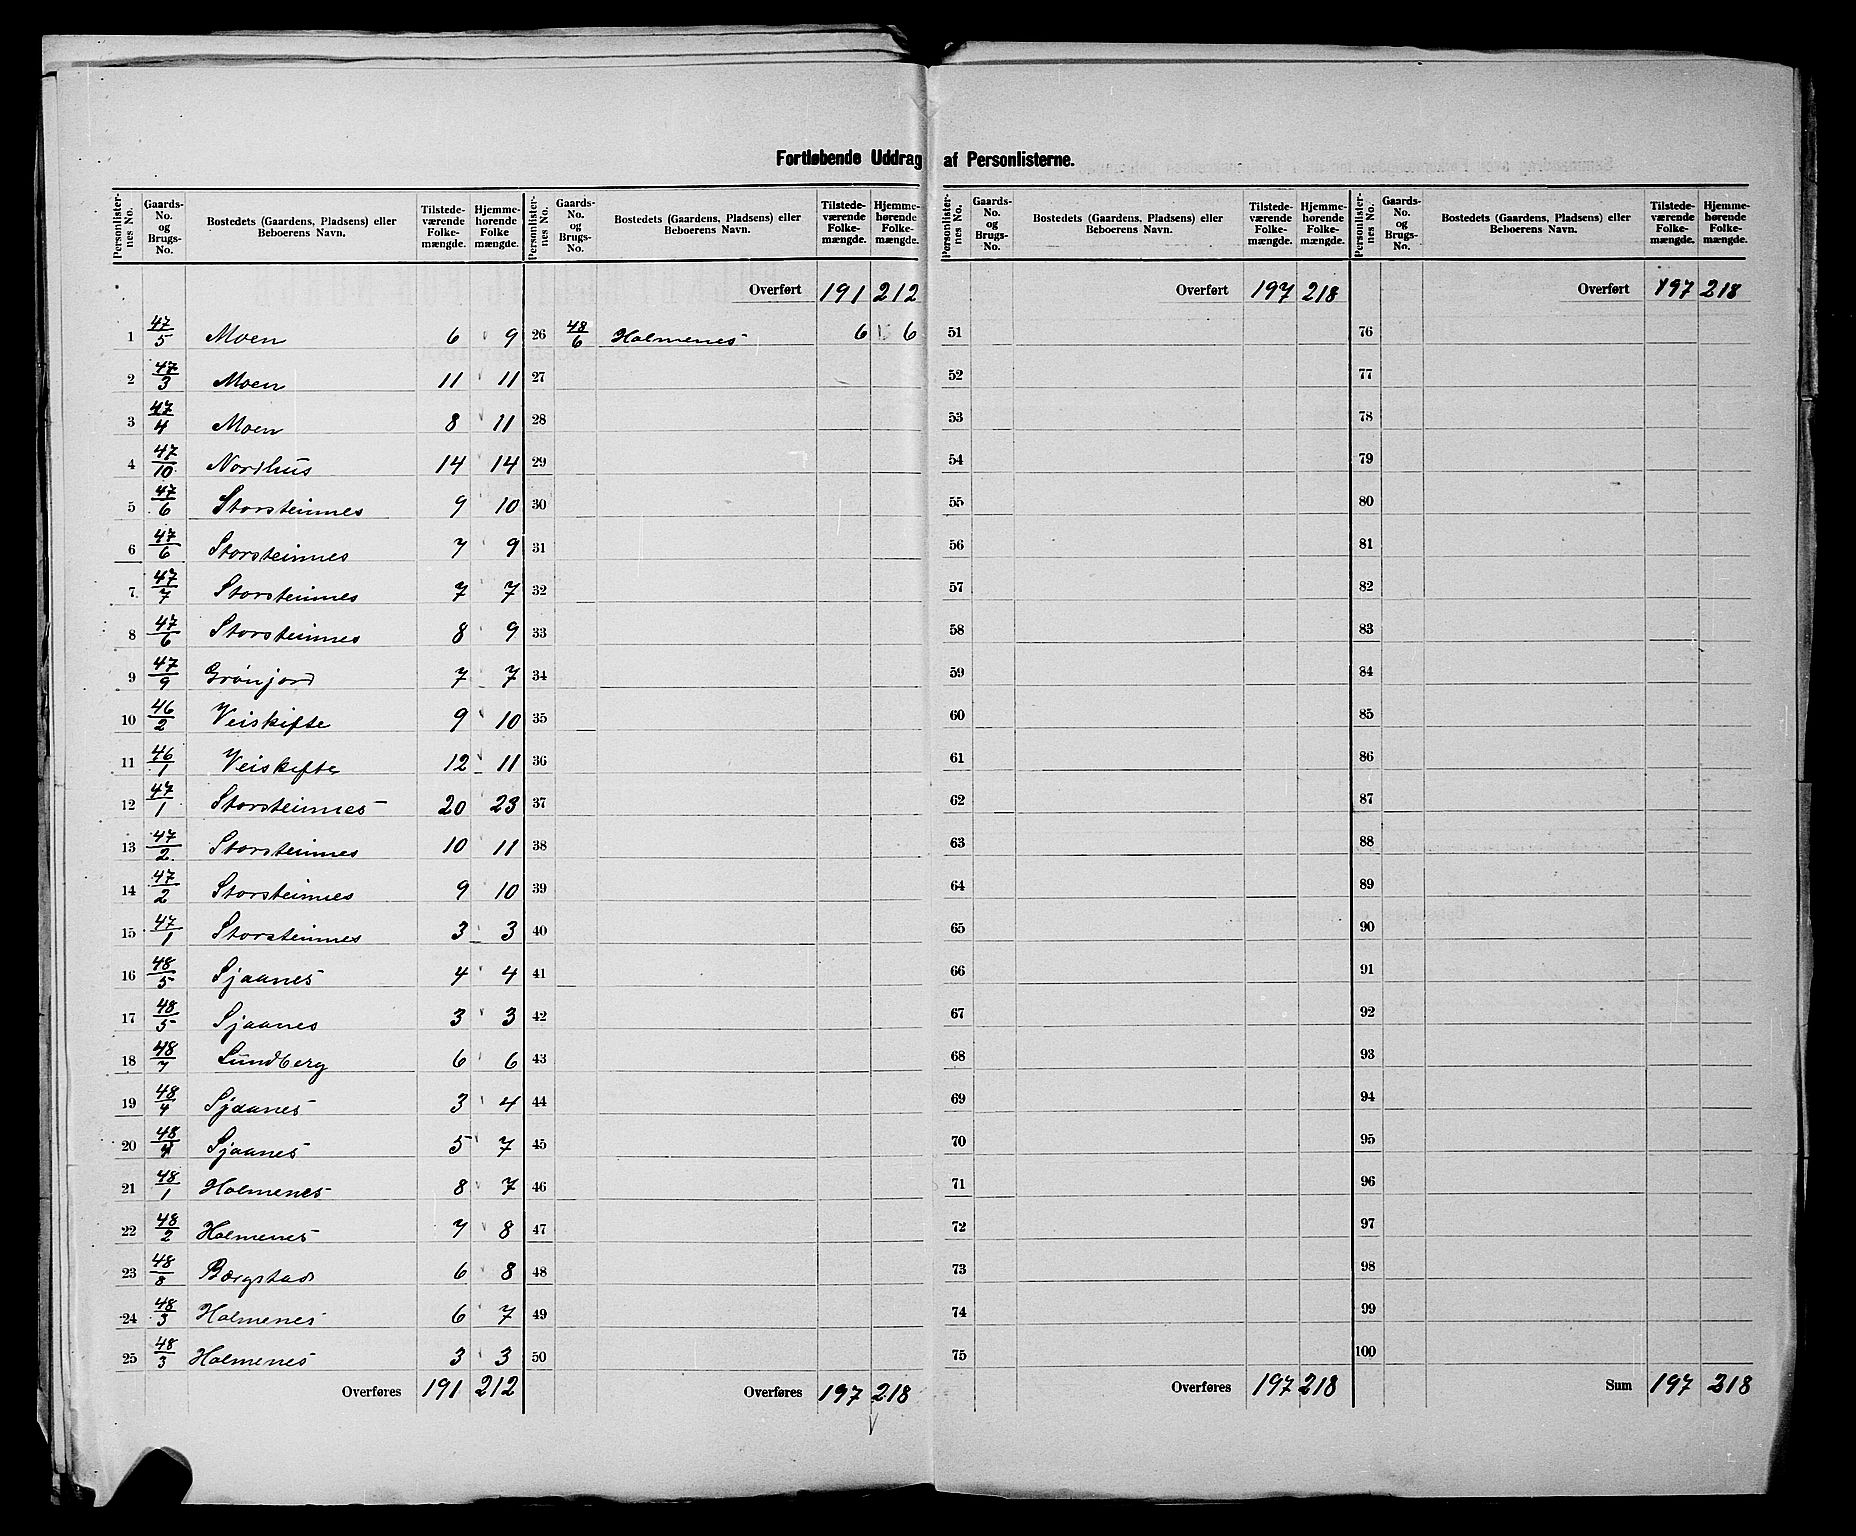 Fortløbende Uddrag af Personlisterne.
Personlisternes No. | Gaards-No. og Brugs-No. | Bostedets (Gaardens, Pladsens) eller Beboerens Navn. | Tilstedeværende Folkemængde. | Hjemmehørende Folkemængde.
1 47/5 Moen 6 9
2 47/3 Moen 11 11
3 47/4 Moen 8 11
4 47/10 Nordhus 14 14
5 47/6 Storsteinnes 9 10
6 47/6 Storsteinnes 7 9
7 47/7 Storsteinnes 7 7
8 47/6 Storsteinnes 8 9
9 47/9 Grønjord 7 7
10 46/2 Veiskifte 9 10
11 46/1 Veiskifte 12 11
12 47/1 Storsteinnes 20 23
13 47/2 Storsteinnes 10 11
14 47/2 Storsteinnes 9 10
15 47/1 Storsteinnes 3 3
16 48/5 Sjaanes 4 4
17 48/5 Sjaanes 3 3
18 48/7 Lundberg 6 6
19 48/4 Sjaanes 3 4
20 48/4 Sjaanes 5 7
21 48/1 Holmenes 8 7
22 48/2 Holmenes 7 8
23 48/8 Bergstad 6 8
24 48/3 Holmenes 6 7
25 48/3 Holmenes 3 3
Overføres 191 212
Personlisternes No. | Gaards-No. og Brugs-No. | Bostedets (Gaardens, Pladsens) eller Beboerens Navn. | Tilstedeværende Folkemængde. | Hjemmehørende Folkemængde.
Overført 191 212
26 48/6 Holmenes 6 6
27
28
29
30
31
32
33
34
35
36
37
38
39
40
41
42
43
44
45
46
47
48
49
50
Overføres 197 218
Personlisternes No. | Gaards-No. og Brugs-No. | Bostedets (Gaardens, Pladsens) eller Beboerens Navn. | Tilstedeværende Folkemængde. | Hjemmehørende Folkemængde.
Overført 197 218
51
52
53
54
55
56
57
58
59
60
61
62
63
64
65
66
67
68
69
70
71
72
73
74
75
Overføres 197 218
Personlisternes No. | Gaards-No. og Brugs-No. | Bostedets (Gaardens, Pladsens) eller Beboerens Navn. | Tilstedeværende Folkemængde. | Hjemmehørende Folkemængde.
Overført 197 218
76
77
78
79
80
81
82
83
84
85
86
87
88
89
90
91
92
93
94
95
96
97
98
99
100
Sum 197 218